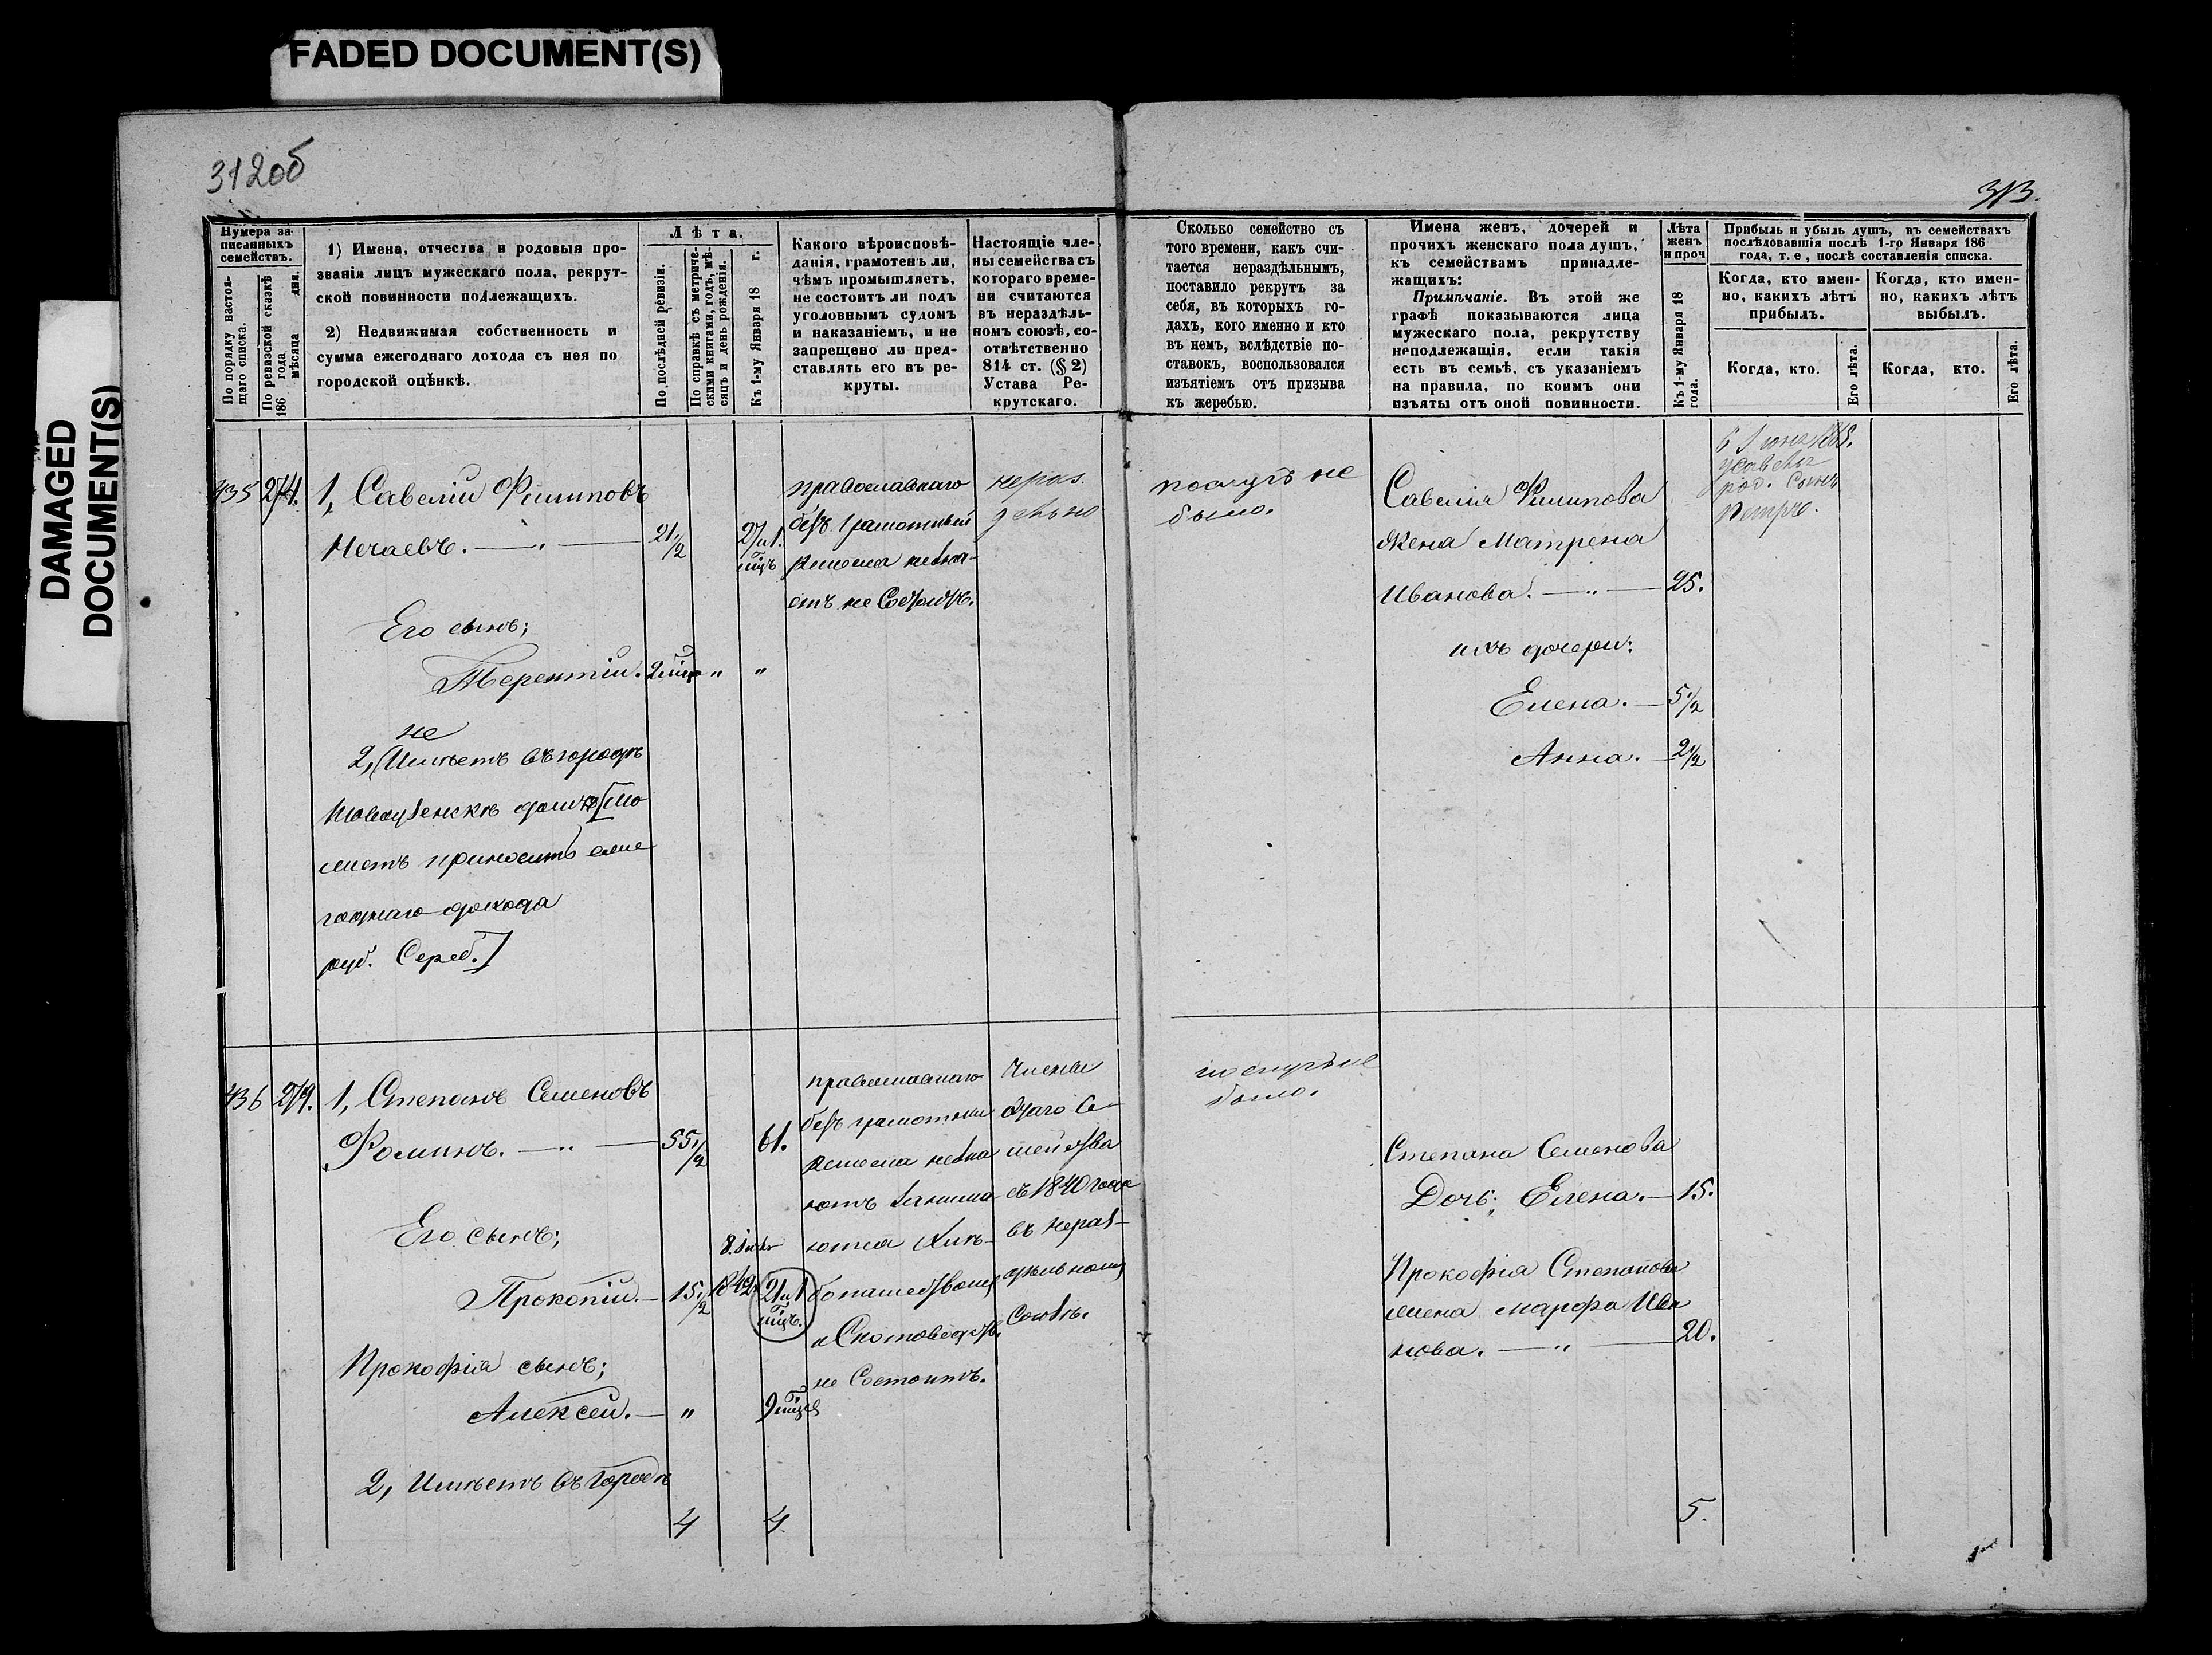 FADED DOCUMENT(S)
DAMAGED
DOCUMENT(S)
312об
313.
Нумера за-
писанныхъ
семействъ.
По порядку настоя-
щаго списка.
По ревизской сказкѣ
186 года
мѣсяца дня.
1) Имена, отчества и родовыя про-
званія лицъ мужескаго пола, рекрут-
ской повинности подлежащихъ.
2) Недвижимая собственность и
сумма ежегоднаго дохода съ нея по
городской оцѣнкѣ.
Лѣта.
По послѣдней ревизіи.
По справкѣ съ метриче-
скими книгами, годъ, мѣ-
сяцъ и день рожденія.
Къ 1-му Января 18 г.
Какого вѣроисповѣ-
данія, грамотенъ ли,
чѣмъ промышляетъ,
не состоитъ ли подъ
уголовнымъ судомъ
и наказаніемъ, и не
запрещено ли пред-
ставлять его въ ре-
круты.
Настоящіе чле-
ны семейства съ
котораго време-
ни считаются
въ нераздѣль-
номъ союзѣ, со-
отвѣтственно
814 ст. (§ 2)
Устава Ре-
крутскаго.
Сколько семейство съ
того времени, какъ счи-
тается нераздѣльнымъ,
поставило рекрутъ за
себя, въ которыхъ го-
дахъ, кого именно и кто
въ немъ, вслѣдствіе по-
ставокъ, воспользовался
изъятіемъ отъ призыва
къ жеребью.
Имена женъ, дочерей и
прочихъ женскаго пола душъ,
къ семействамъ принадле-
жащихъ:
Примѣчаніе. Въ этой же
графѣ показываются лица
мужескаго пола, рекрутству
неподлежащія, если такія
есть въ семьѣ, съ указаніемъ
на правила, по коимъ они
изъяты отъ оной повинности.
Лѣта
женъ
и проч
Къ 1-му Января 18
года.
Прибыль и убыль душъ, въ семействахъ
послѣдовавшія послѣ 1-го Января 186
года, т. е, послѣ составленія списка.
Когда, кто имен-
но, какихъ лѣтъ
прибылъ.
Когда, кто имен-
но, какихъ лѣтъ
выбылъ.
Когда, кто.
Его лѣта.
Когда, кто.
Его лѣта.
435 274. 1, Савелій Филиповъ
Нечаевъ. — „ — 21 1/2
27 и 1.
мцъ
Его сынъ;
Терентій. 2 мцр „ „
не
2, (Имѣетъ въ городѣ
Новоузенскѣ домъ
приноситъ еже
годнаго дохода
руб. Сереб.]
православнаго
безъ грамотный
ремесла не зна-
етъ не Состоитъ.
нераз.
дѣльно
послугъ не
было.
Савелія Филипова
жена Матрена
Иванова. — „ — 25.
ихъ дочери:
Елена. — 5 1/2
Анна. — 2 1/2
род. Сынъ
Петръ.
436 279. 1, Степанъ Семеновъ
Фоминъ. — „ — 55 1/2 61.
Его сынъ;
Прокопій. — 15 1/2
8.
1842
21 и 1
мцъ.
Прокофія сынъ;
Алексей. — „ 9 мцев
2, Имѣетъ въ Городѣ
4 4.
православнаго
безъ грамотны
ремесла не зна
ютъ занима
ются Хлѣ-
бопашествомъ
и Скотоводств.
не Состоитъ.
Члены
Сего Се-
мейства
съ 1840 года
въ нераз-
дѣльномъ
Союзѣ.
послугъ не
было.
Степана Семенова
Дочь; Елена. — 15.
Прокофія Степанова
жена марфа Ива
нова. — „ — 20.
5.